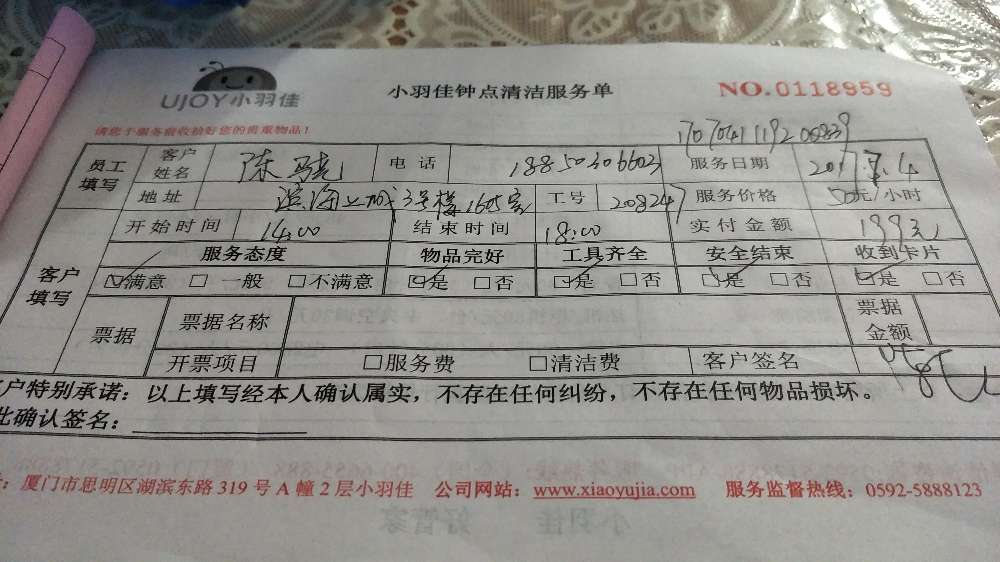 UJOY小羽佳 小羽佳钟点清洁服务单 NO.0118959
请您于服务前收拾好您的贵重物品！
员工填写 客户姓名 陈骁 电话 18850306603 服务日期
地址 滨海上城3号楼1605室 工号 208247 服务价格 50元/小时
开始时间 14:00 结束时间 18:00 实付金额 199元
客户填写 服务态度 物品完好 工具齐全 安全结束 收到卡片
☑满意 □一般 □不满意 ☑是 □否 ☑是 □否 ☑是 □否 ☑是 □否
票据 票据名称 票据金额
开票项目 □服务费 □清洁费 客户签名
户特别承诺：以上填写经本人确认属实，不存在任何纠纷，不存在任何物品损坏。
此确认签名：
：厦门市思明区湖滨东路 319 号 A 幢 2 层小羽佳 公司网站：www.xiaoyujia.com 服务监督热线：0592-5888123